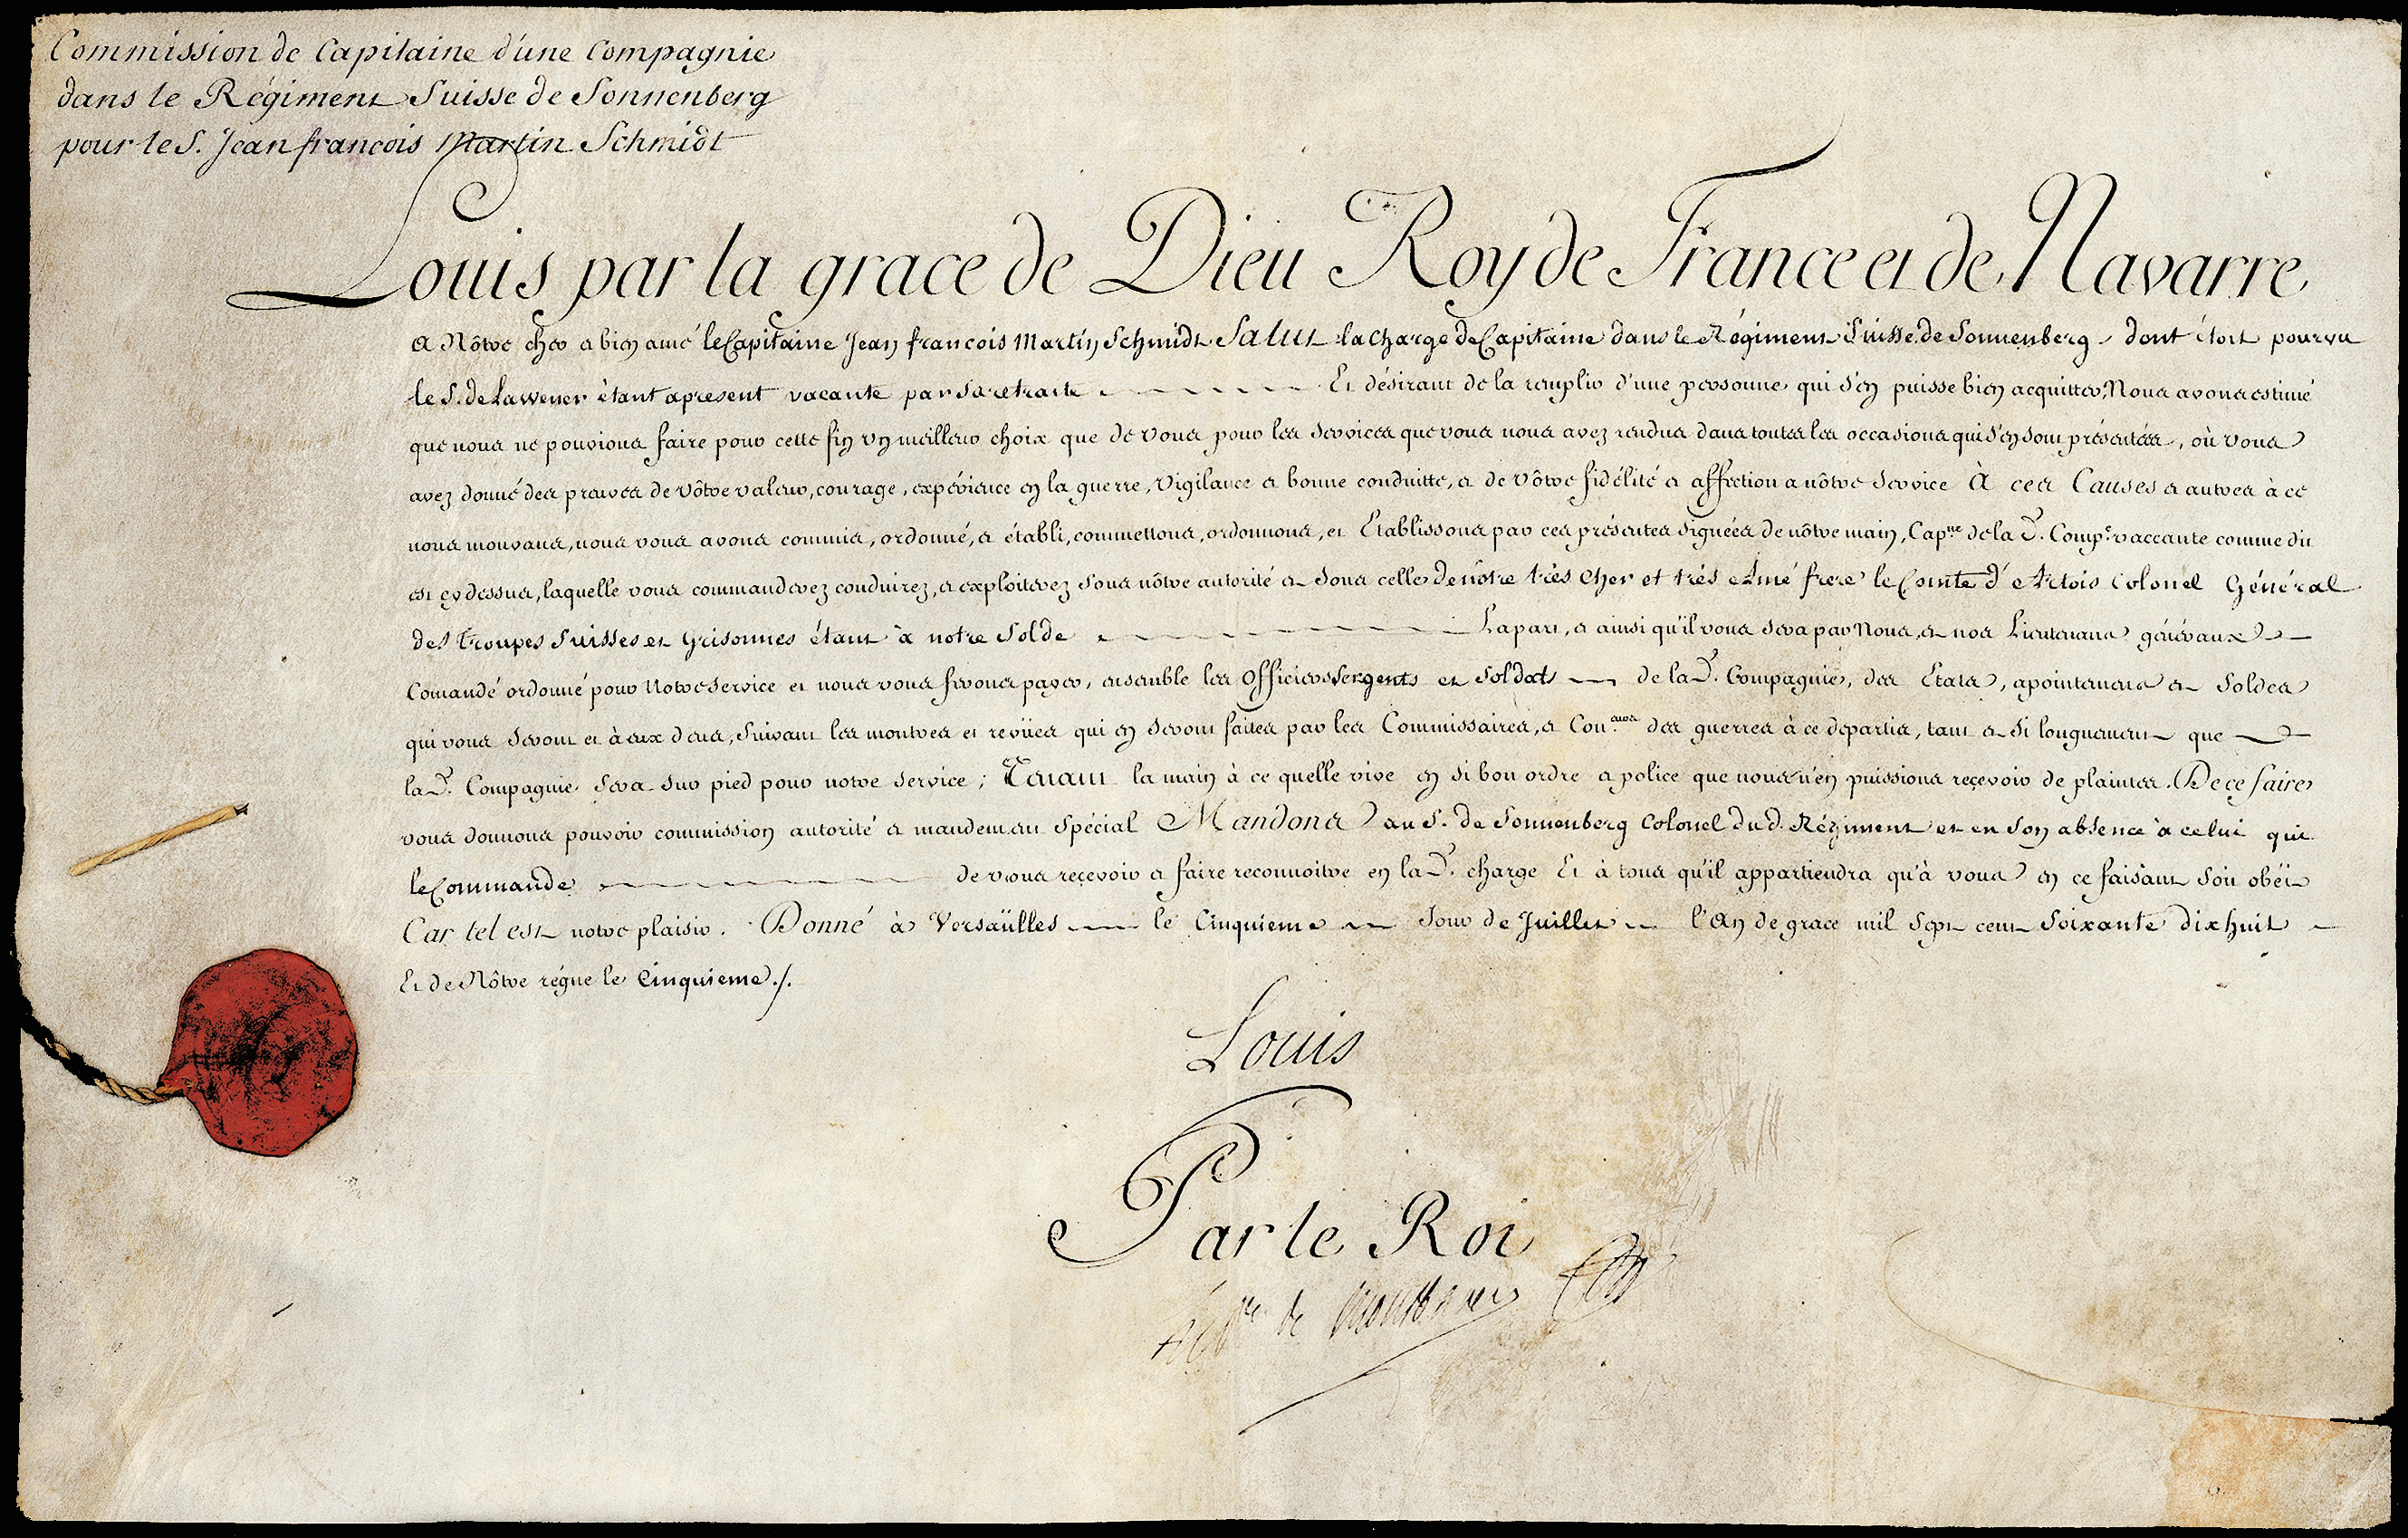 Commission de Capitaine d'une Compagnie
dans le Régiment Suisse de Sonnenberg
pour le S. Jean françois Martin Schmidt
Louis par la grace de Dieu Roy de France et de Navarre
A Nôtre cher et bien amé le Capitaine Jean françois Martin Schmidt Salut la Charge de Capitaine dans le Régiment Suisse de Sonnenberg dont étoit pourvu
le S. de étant apresent vacante par sa retraite Et désirant de la remplir d'une personne qui s'en puisse bien acquitter, Nous avons estimé
que nous ne pouvions faire pour cette fin un meilleur choix que de vous pour les services que vous nous avez rendus dans toutes les occasions qui s'en sont présentées, où vous
avez donné des preuves de vôtre valeur, courage, expérience en la guerre, vigilance et bonne conduitte, et de vôtre fidélité et affection a nôtre service À ces Causes et autres à ce
nous mouvans, nous vous avons commis, ordonné, et établi, commettons, ordonnons, et Etablissons par ces présentes signées de nôtre main, Cap.ne de la d. Comp.e vaccante comme dit
est cy dessus, laquelle vous commanderez conduirez, et exploiterez sous nôtre autorité et sous celle de nôtre très cher et très Amé frere le Comte d'Artois Colonel Général
des troupes Suisses et Grisonnes étant à notre Solde La part, et ainsi qu'il vous sera par Nous, et nos Lieutenans généraux
Comandé et ordonné pour Notre service et nous vous ferons payer, ensemble les Officiers Sergents et Soldats de la d. Compagnie, des Etats, apointemens et Soldes
qui vous seront et à eux deus, suivant les montres et revües qui en seront faites par les Commissaires, et Con. des guerres à ce departis, tant et si longuement que
la d. Compagnie sera sur pied pour notre service; Tenant la main à ce quelle vive en si bon ordre et police que nous n'en puissions reçevoir de plaintes. De ce faire
vous donnons pouvoir commission autorité et mandement spécial Mandons au S. de Sonnenberg Colonel dud. Régiment et en son absence à celui qui
le Commande de vous reçevoir et faire reconnoitre en la d. charge Et à tous qu'il appartiendra qu'à vous en ce faisant soit obëi
Car tel est notre plaisir. Donné à Versaïlles le Cinquieme Jour de Juillet l'An de grace mil sept cent Soixante dix huit
Et de Nôtre régne le Cinquieme ./.
Louis
Par le Roi